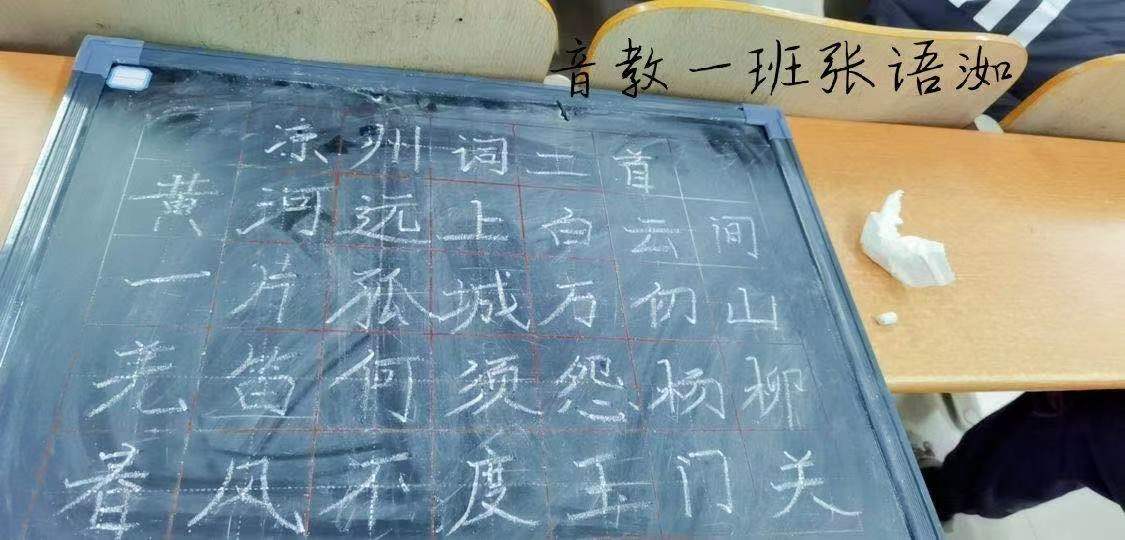 音教一班张语洳
凉州词二首
黄河远上白云间
一片孤城万仞山
羌笛何须怨杨柳
春风不度玉门关